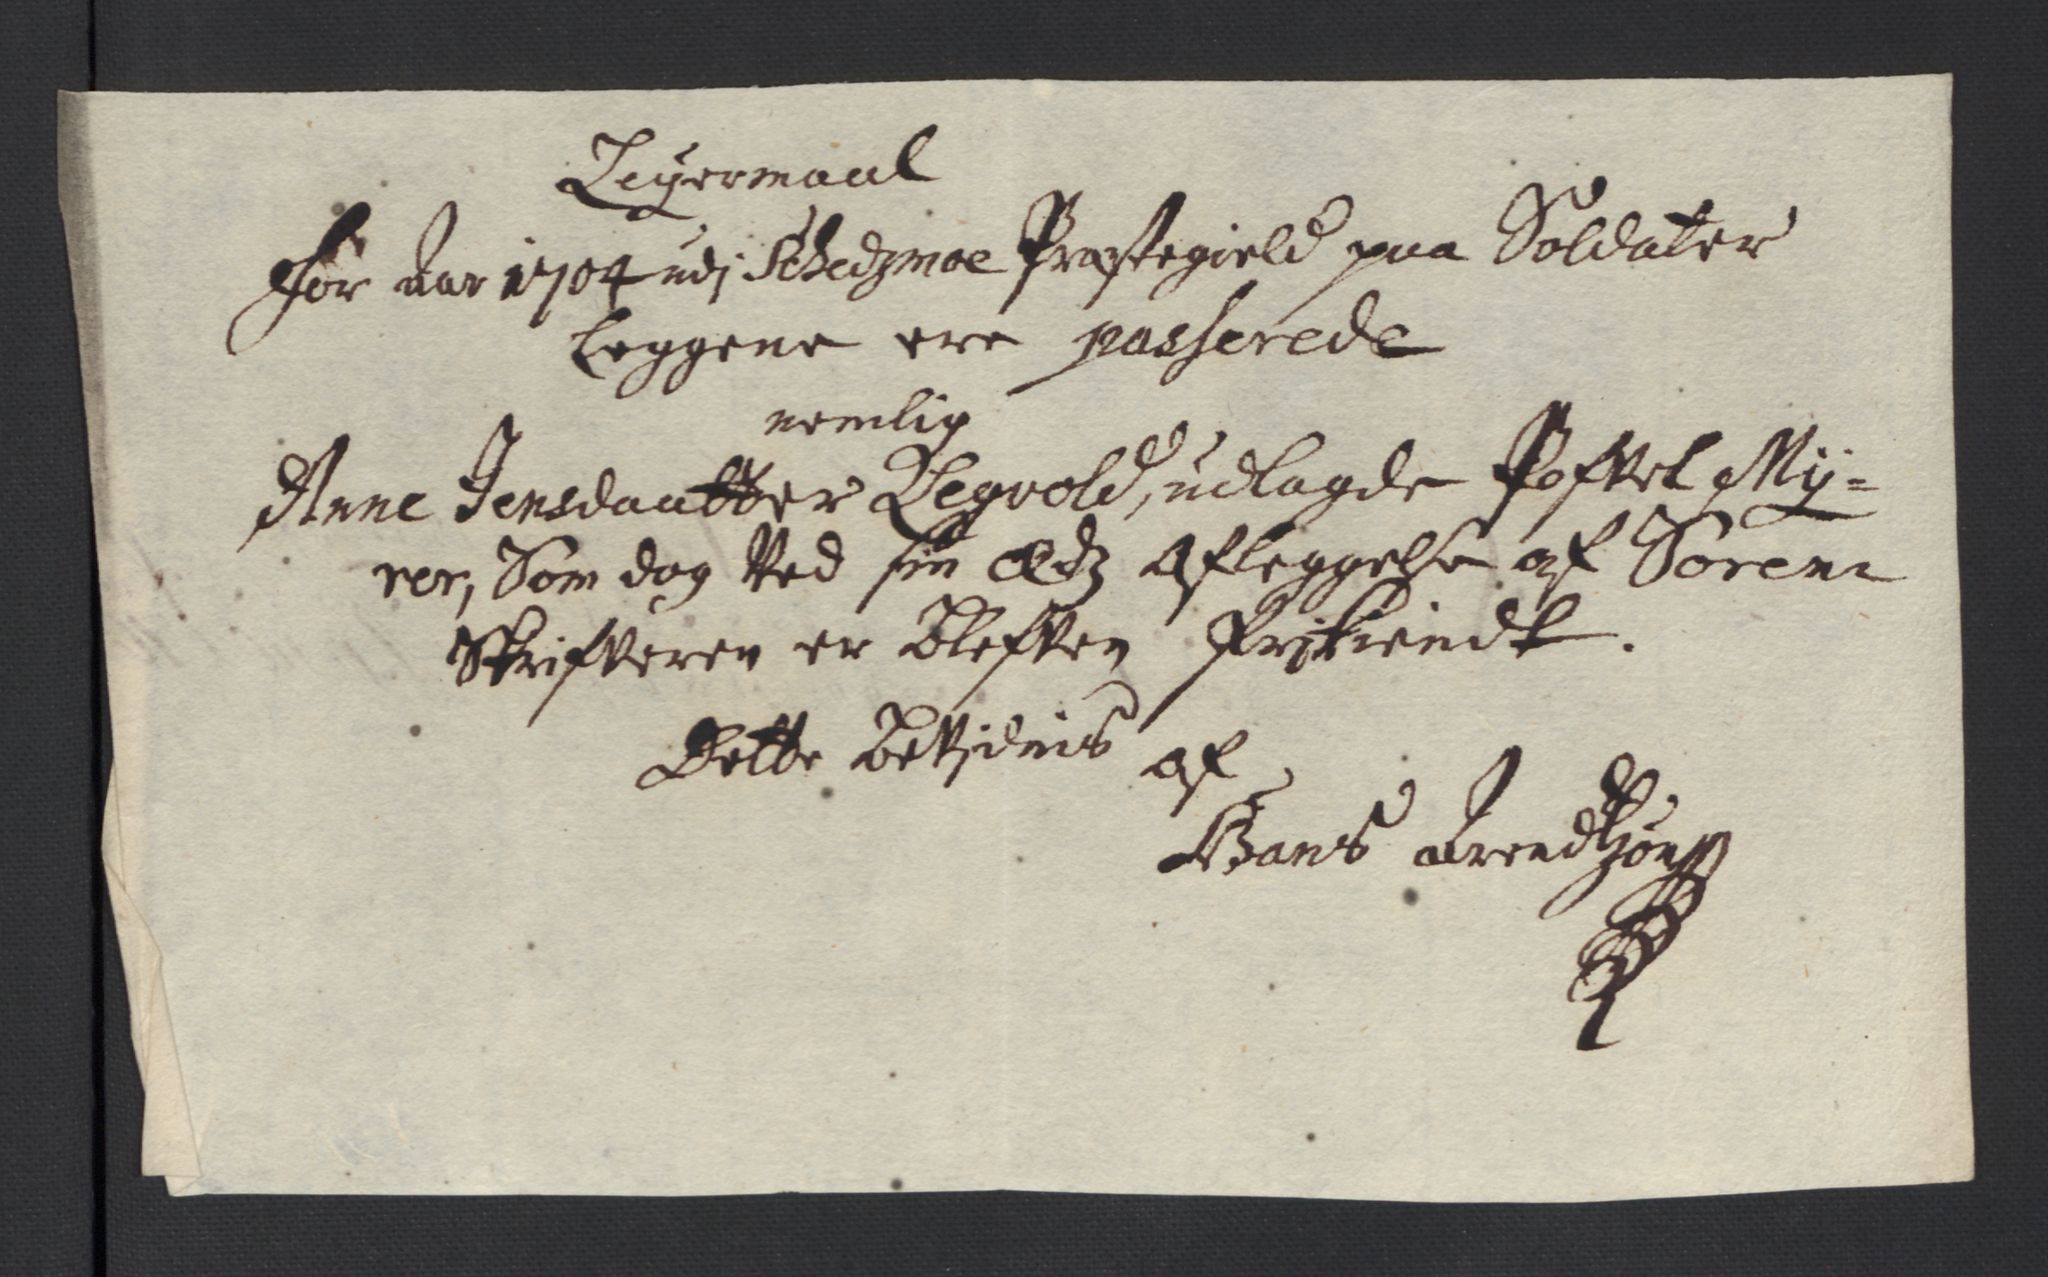 Leyermaal
for Aar 1704 udj Schedzmoe Præstegield paa Soldater
Leggene ere passerede
nemlig
Anne Jensdaatter Legvold, udlagde Pofvel Mÿ=
rer, Som dog ved sin Eedz afleggelse af Sorenn
Skrifveren er blefven frikiendt.
Dette betÿdnis af
Hans Arendtzøn